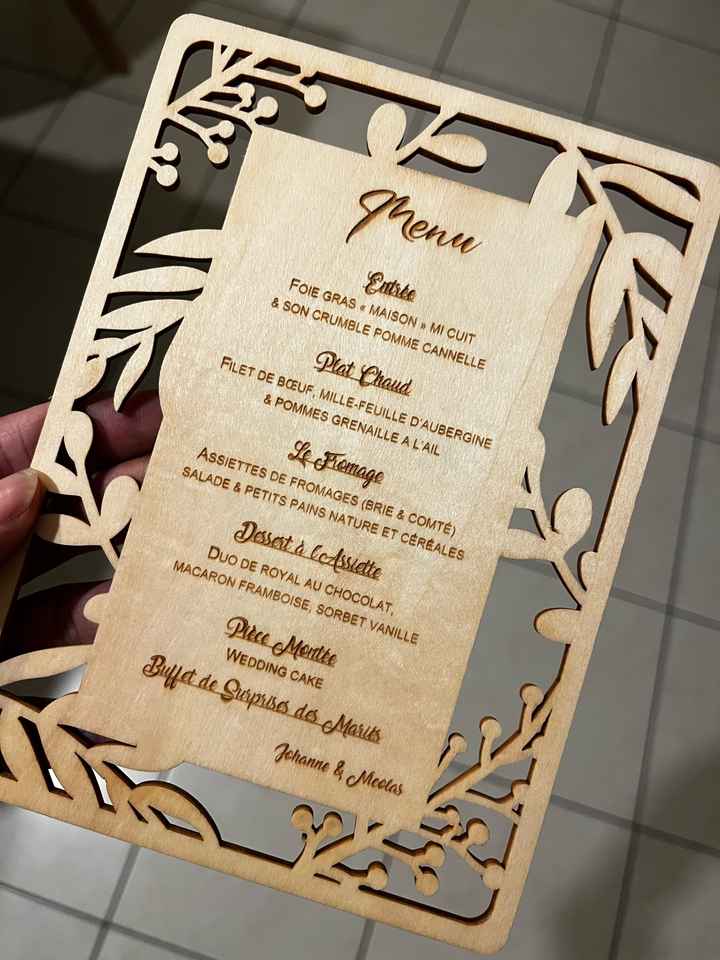 Menu
Entrée
Foie gras « maison » mi cuit
& son crumble pomme cannelle
Plat Chaud
Filet de bœuf, mille-feuille d'aubergine
& pommes grenaille a l'ail
Le Fromage
Assiettes de fromages (brie & comté)
salade & petits pains nature et céréales
Dessert à l'Assiette
Duo de royal au chocolat,
macaron framboise, sorbet vanille
Pièce Montée
Wedding cake
Buffet de Surprises des Mariés
Johanne & Nicolas